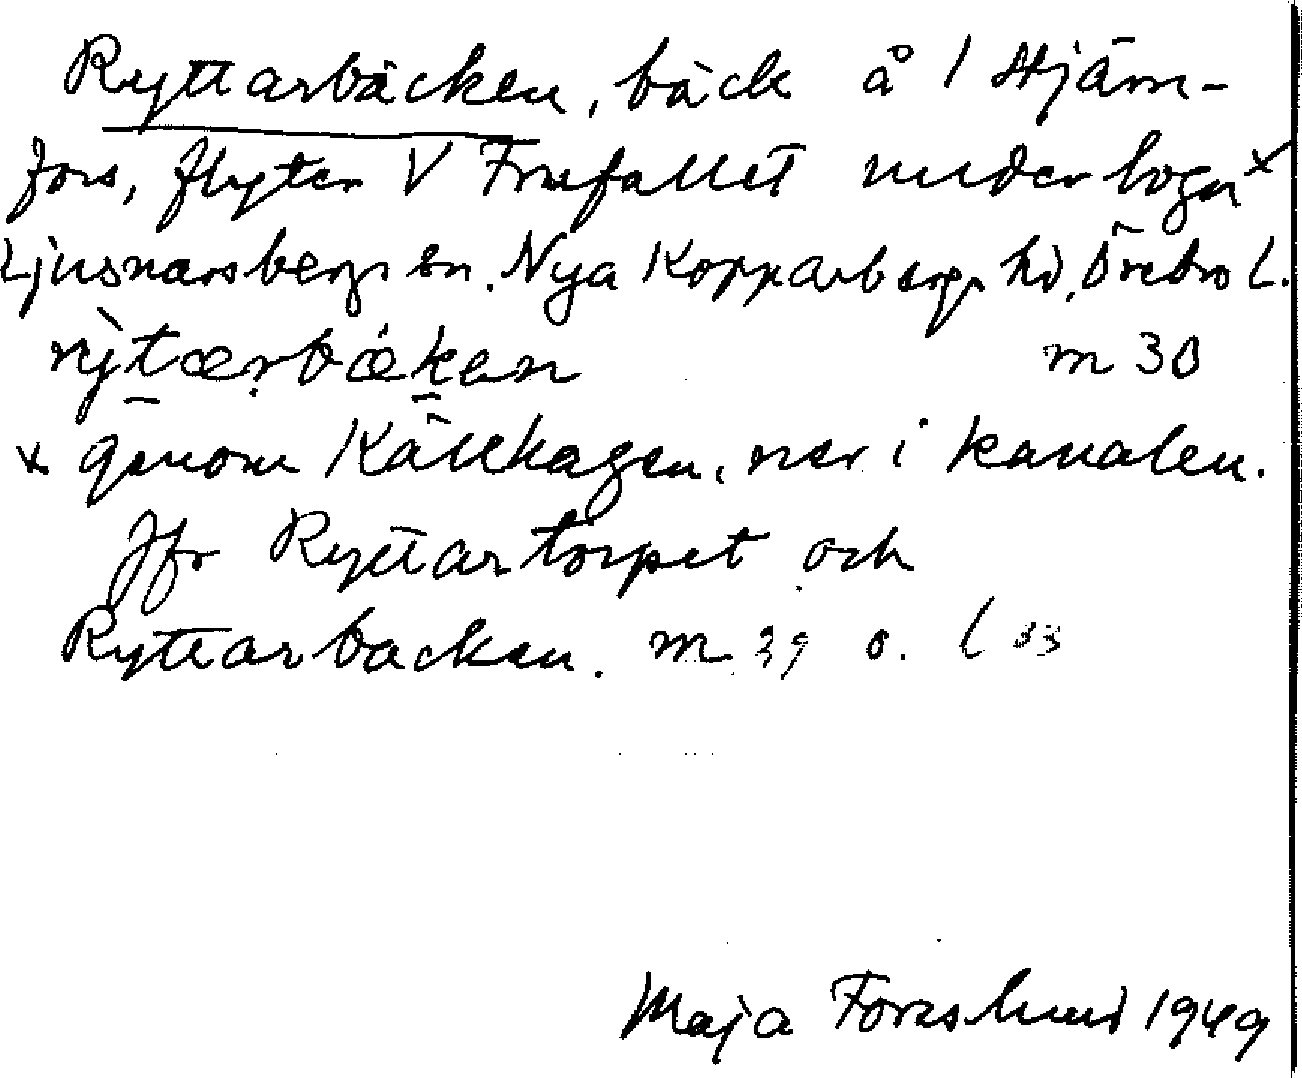 Ryttarbäcken, bäck å 1 Hjäm-
fors, flyter V Frufallet under hogen x
Ljusnarsbergs sn. Nya Kopparbergs hd, Örebro l.
rỳtærbæken m 30
x genom Källhagen, ner i kanalen.
Jfr Ryttartorpet och
Ryttarbacken. m 39 o. l 33
Maja Forsslund 1949